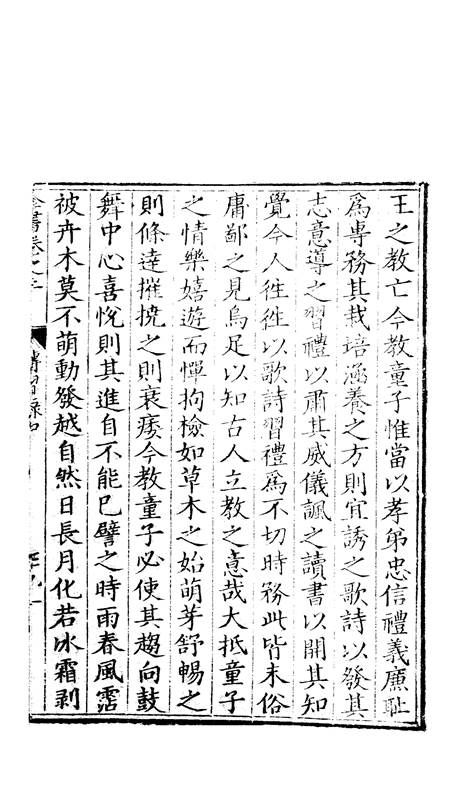 王之教亡今教童子惟當以孝弟忠信禮義廉恥
爲專務其栽培涵養之方則宜誘之歌詩以發其
志意導之習禮以肅其威儀諷之讀書以開其知
覺今人徃徃以歌詩習禮爲不切時務此皆末俗
庸鄙之見烏足以知古人立教之意哉大抵童子
之情樂嬉遊而憚拘檢如草木之始萌芽舒暢之
則條達摧撓之則衰痿今教童子必使其趨向鼓
舞中心喜悅則其進自不能已譬之時雨春風霑
被卉木莫不萌動發越自然日長月化若氷霜剥
全書卷之二
傳習錄中